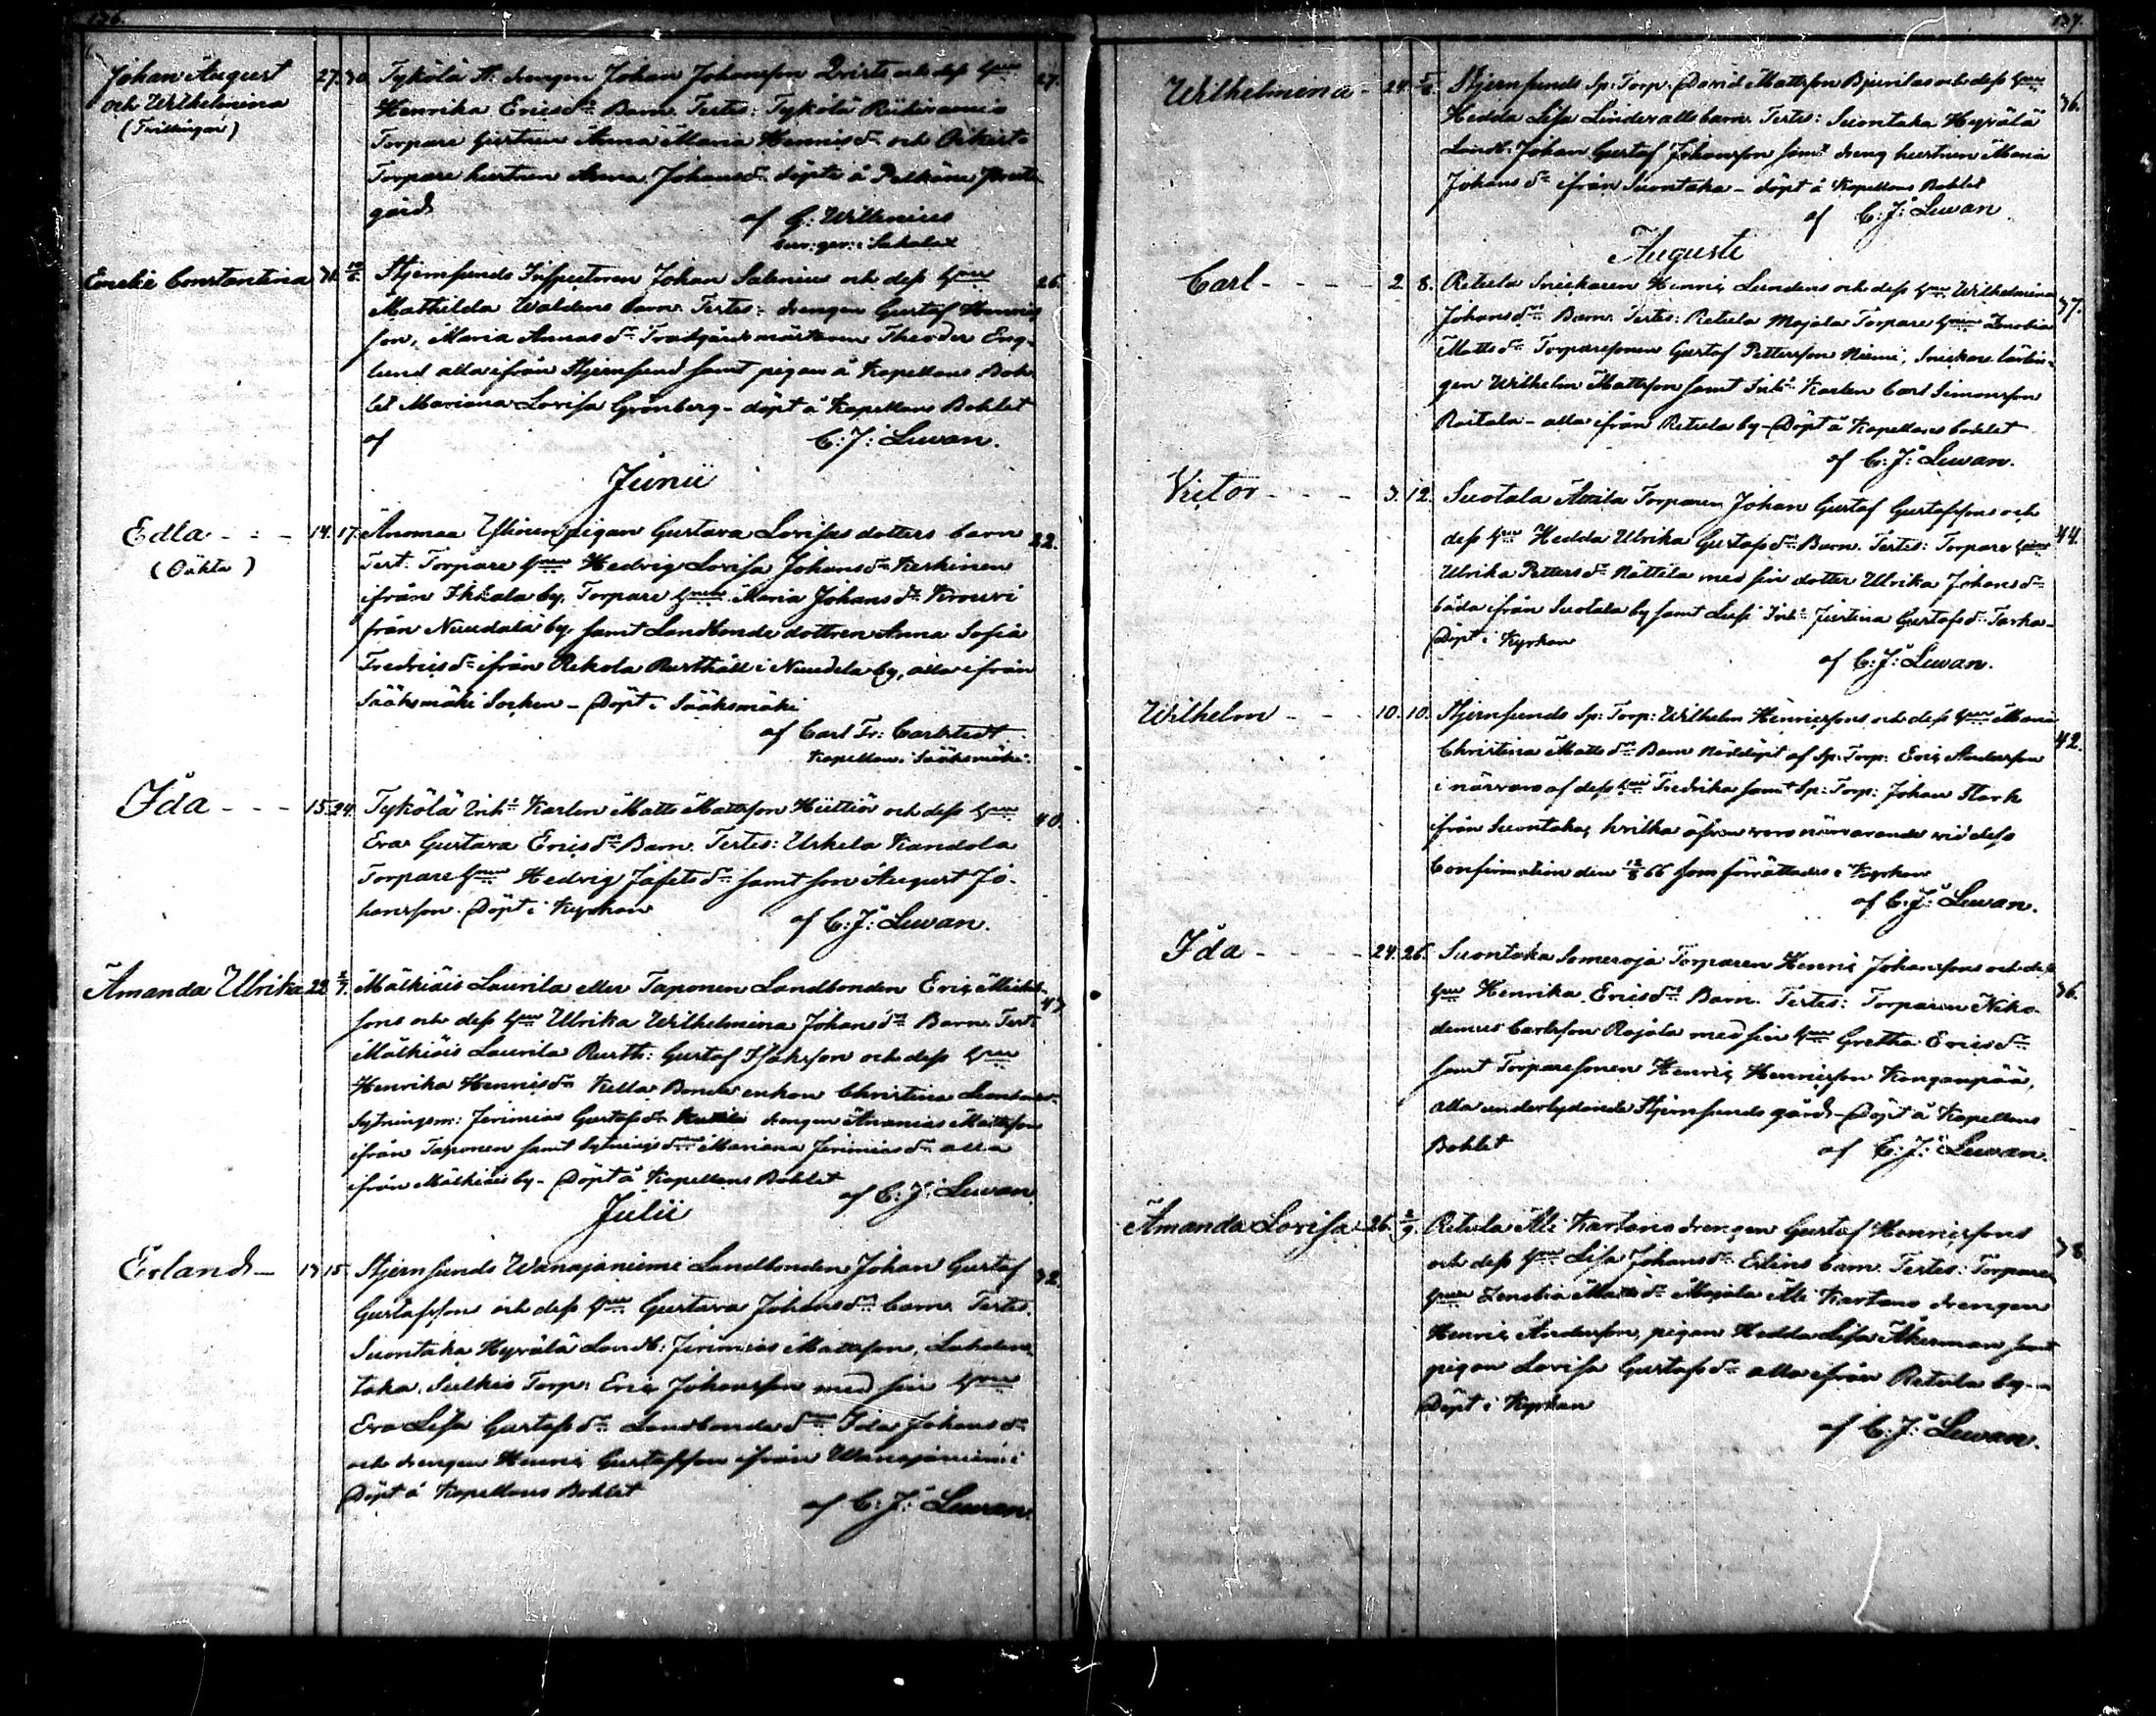 136.
Johan August 27. 30. Tykölä A. drengen Johan Johansson Qvists och dess Hu 27.
och Wilhelmina Henrika Ericsdr Barn. Testes: Tykölä
(Tvillingar) Torpare hustrun Anna Maria Henricsdr och
Torpare hustrun Anna Johansdr döpte å Pelkäne Prest
gård af G: Willenius
i Sahalax
Constantina 31. 10/6. Stjernsunds Inspectoren Johan Salenius och dess Hu 26.
Mathilda Waldens barn. Testes: drengen Gustaf Henrics
son, Maria Annasdr Trädgårdsmästaren Theodor Eng-
lund alla ifrån Stjernsund samt pigan å Kapellans Bohl
et Mariana Lovisa Grönberg - döpt å Kapellans Bohlet
af C: J: Lewan.
Junii
Edla - - - 14. 17. Anomaa pigan Gustava Lovisas dotters barn 22.
(Oäkta) Test. Torpare Hun Hedvig Lovisa Johansdr Keskinen
ifrån by, Torpare Hun Maria Johansdr
från Nuudala by, samt Landbonde dottren Anna Sofia
Fredricsdr ifrån Rekola Rusthåll i Nuudela by, alla ifrån
Sääksmäki Socken - Döpt i Sääksmäki
af Carl Fr: Carlstedt
Kapellan i Sääksmäki.
Ida - - - 15. 24. Tykölä Inh. Karlen Matts Mattsson och dess Hu 40.
Eva Gustava Ericsdr Barn. Testes: Uskela Kandola
Torpare Hun Hedvig Jafetsdr samt son August Jo-
hansson. Döpt i Kyrkan af C: J: Lewan.
Amanda Ulrika 22. 1/7. Mälkiäis Laurila eller Taponen Landbonden Eric Michel-
sons och dess Hu Ulrika Wilhelmina Johansdr Barn. Test
Mälkiäis Laurila Rusth: Gustaf Isaksson och dess Hu
Henrika Henricsdr Kella Bonde enkan Christina
Sytningsm: Jerimias Gustafsdr drengen Ananias Mattsson
ifrån Taponen samt Sytningsdr Mariana Jerimiasdr alla
ifrån Mälkiäis by - Döpt å Kapellans Bohlet
af C: J: Lewan
Julii
Erland - 13 15. Stjernsunds Wanajaniemi Landbonden Johan Gustaf 32.
Gustafssons och dess Hu Gustava Johansdr barn. Testes.
Suontaka Hyrälä Landb: Jerimias Mattsson, Lahden
taka Torp: Eric Johansson med sin Hu
Eva Lisa Gustafsdr Landbonde Dr Ida Johansdr
och drengen Henric Gustafsson ifrån Wanajaniemi
Döpt å Kapellans Bohlet af C: J: Lewan.
137.
Wilhelmina - 24. Stjernsunds Sp: Torp. David Mattsson och dess Hu 36.
Hedda Lisa Linderalls barn. Testes: Suontaka Hyrälä
Landb: Johan Gustaf Johansson samt dreng hustrun Maria
Johansdr ifrån Suontaka - döpt å Kapellans Bohlet
af C: J: Lewan.
Augusti
Carl - - - - 2 8. Retula Snickaren Henric Lundens och dess Hu Wilhelmina 37.
Johansdr Barn. Testes: Retula Majala Torpare Hun Zenobia
Mattsdr Torparesonen Gustaf Pettersson Niemi, Snickare lärlin-
gen Wilhelm Mattsson samt Inh. Karlen Carl Simonsson
- alla ifrån Retula by - Döpt å Kapellans bohlet
af C: J: Lewan.
Victor - - - - 3. 12. Suotala Torparen Johan Gustaf Gustafssons och 44.
dess Hu Hedda Ulrika Gustafsdr Barn. Testes: Torpare Hun
Ulrika Pettersdr Nättilä med sin dotter Ulrika Johansdr
båda ifrån Suotala by samt Inh. Justina Gustafsdr
Döpt i Kyrkan
af C: J: Lewan.
Wilhelm - - - 10. 10. Stjernsunds Sp: Torp: Wilhelm Henricssons och dess Hu Maria 42.
Christina Mattsdr Barn Nöddöpt af Sp: Torp: Eric Andersson
i närvaro af dess Hu Fredrika samt Sp: Torp: Johan Stark
ifrån Suontaka, hvilka äfven voro närvarande vid dess
Confirmation den 12/8 66 som förrättades i Kyrkan
af C: J: Lewan.
Ida - - - - - 24. 26. Suontaka Someroja Torparen Henric Johanssons och dess 36.
Hu Henrika Ericsdr Barn. Testes: Torparen Niko-
demus Carlsson Rajala med sin Hu Gretha Ericsdr
samt Torparesonen Henric Henricsson Kanganpää,
alla underlydande Stjernsunds gård - Döpt å Kapellans
Bohlet af C: J: Lewan.
Amanda Lovisa 26. 2/9. Retula Ali Kartano drengen Gustaf Henricssons 38
och dess Hu Lisa Johansdr Edlins barn. Testes: Torpare
Hun Zenobia Mattsdr Majala Ali Kartano drengen
Henric Andersson, pigan Hedda Lisa Åkerman samt
pigan Lovisa Gustafsdr alla ifrån Retula by
Döpt i Kyrkan
af C: J: Lewan.